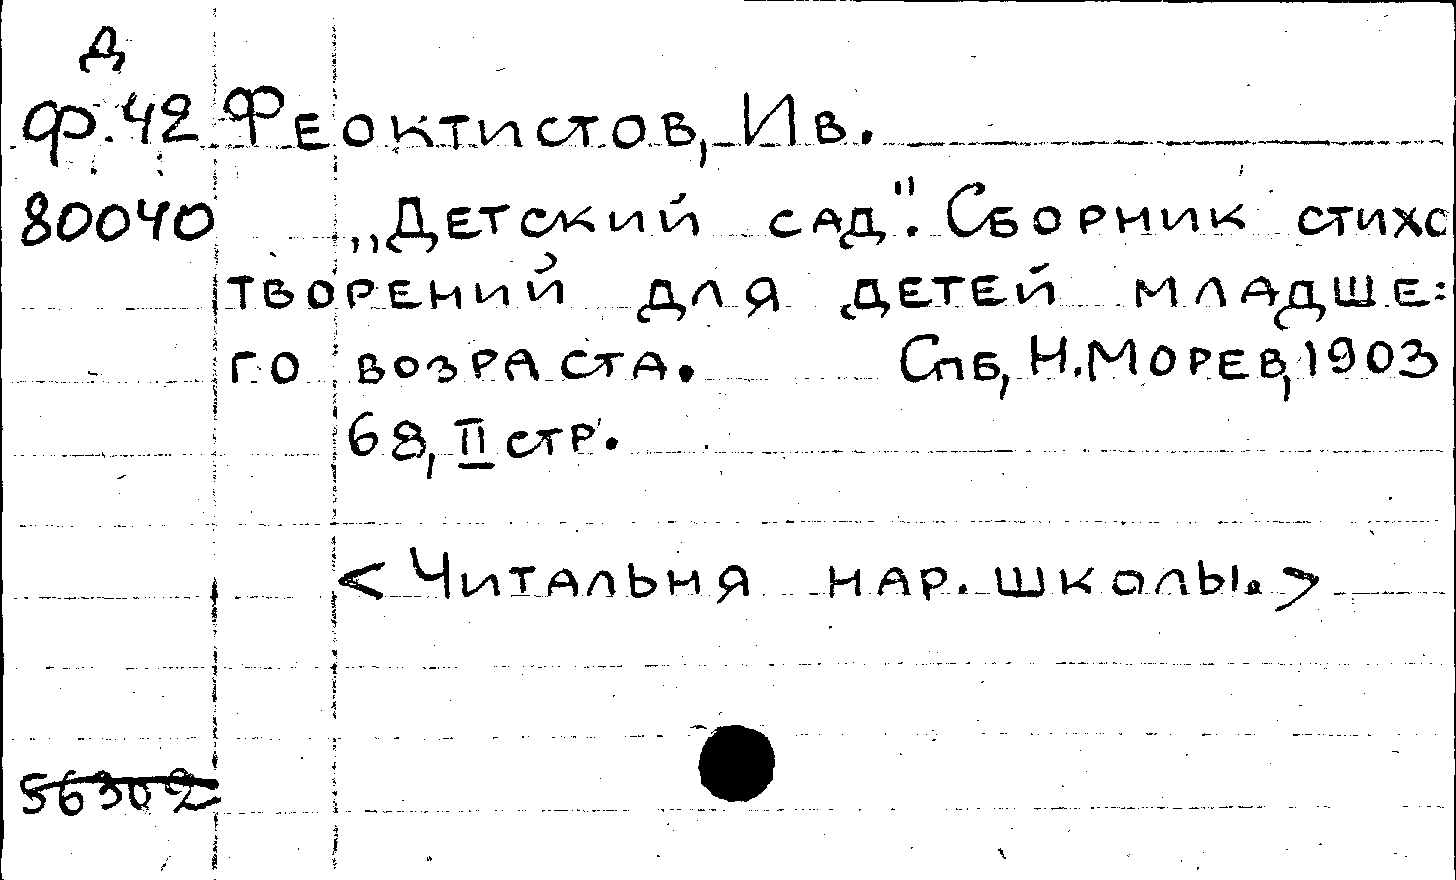 Д
Ф.42 Феоктистов, Ив.
80040 „Детский сад". Сборник стихо
творений для детей младше=
го возраста. Спб, Н.Морев, 1903
68, II стр.
<Читальня нар. школы.>
56302